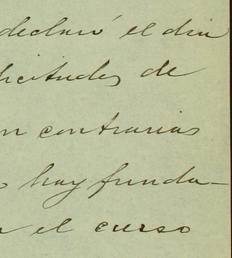 declaró el dia
licitudes de
n contrarias
o hay funda-
n el curso